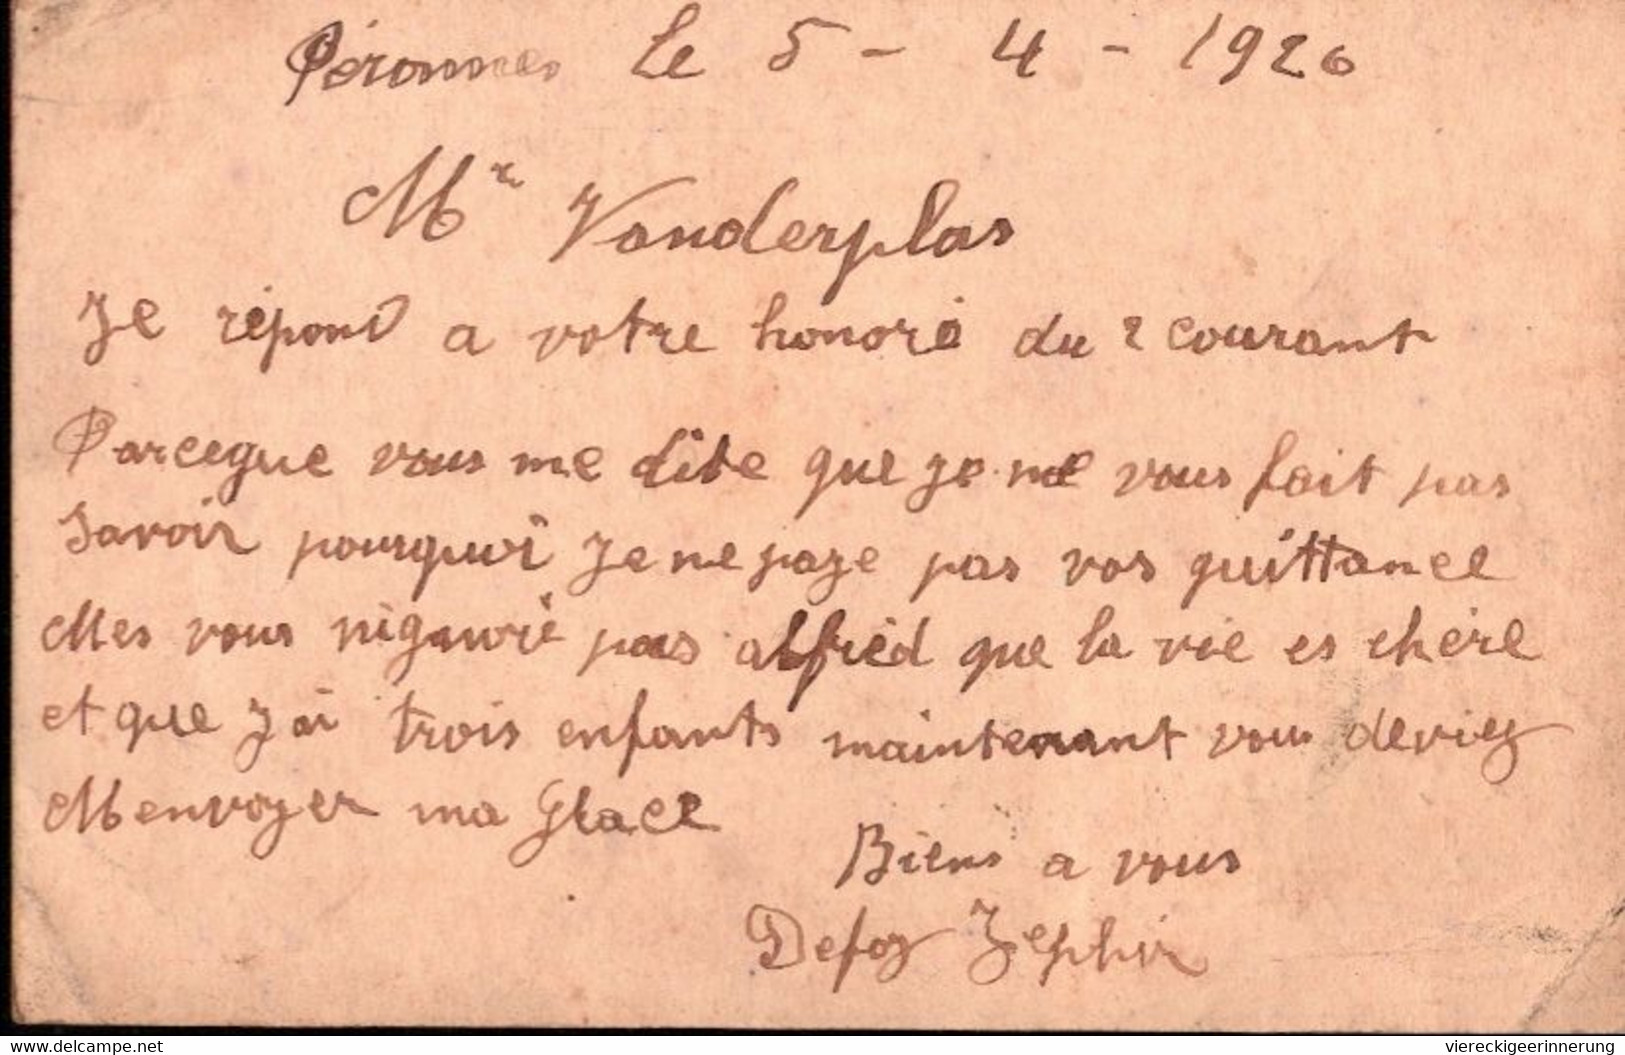 Péronnes le 5 - 4 - 1926
Mr Vanderplas
Je répond a votre honoré du 2 courant
Parceque vous me dite que je ne vous fait pas
Savoir pourquoi je ne paye pas vos quittance
Mes vous nigauré pas alfred que la vie es chère
et que J ai trois enfants maintenant vous deviez
M envoyer ma Glace
Biens a vous
Defoy Zephir
www.delcampe.net
viereckigeerinnerung